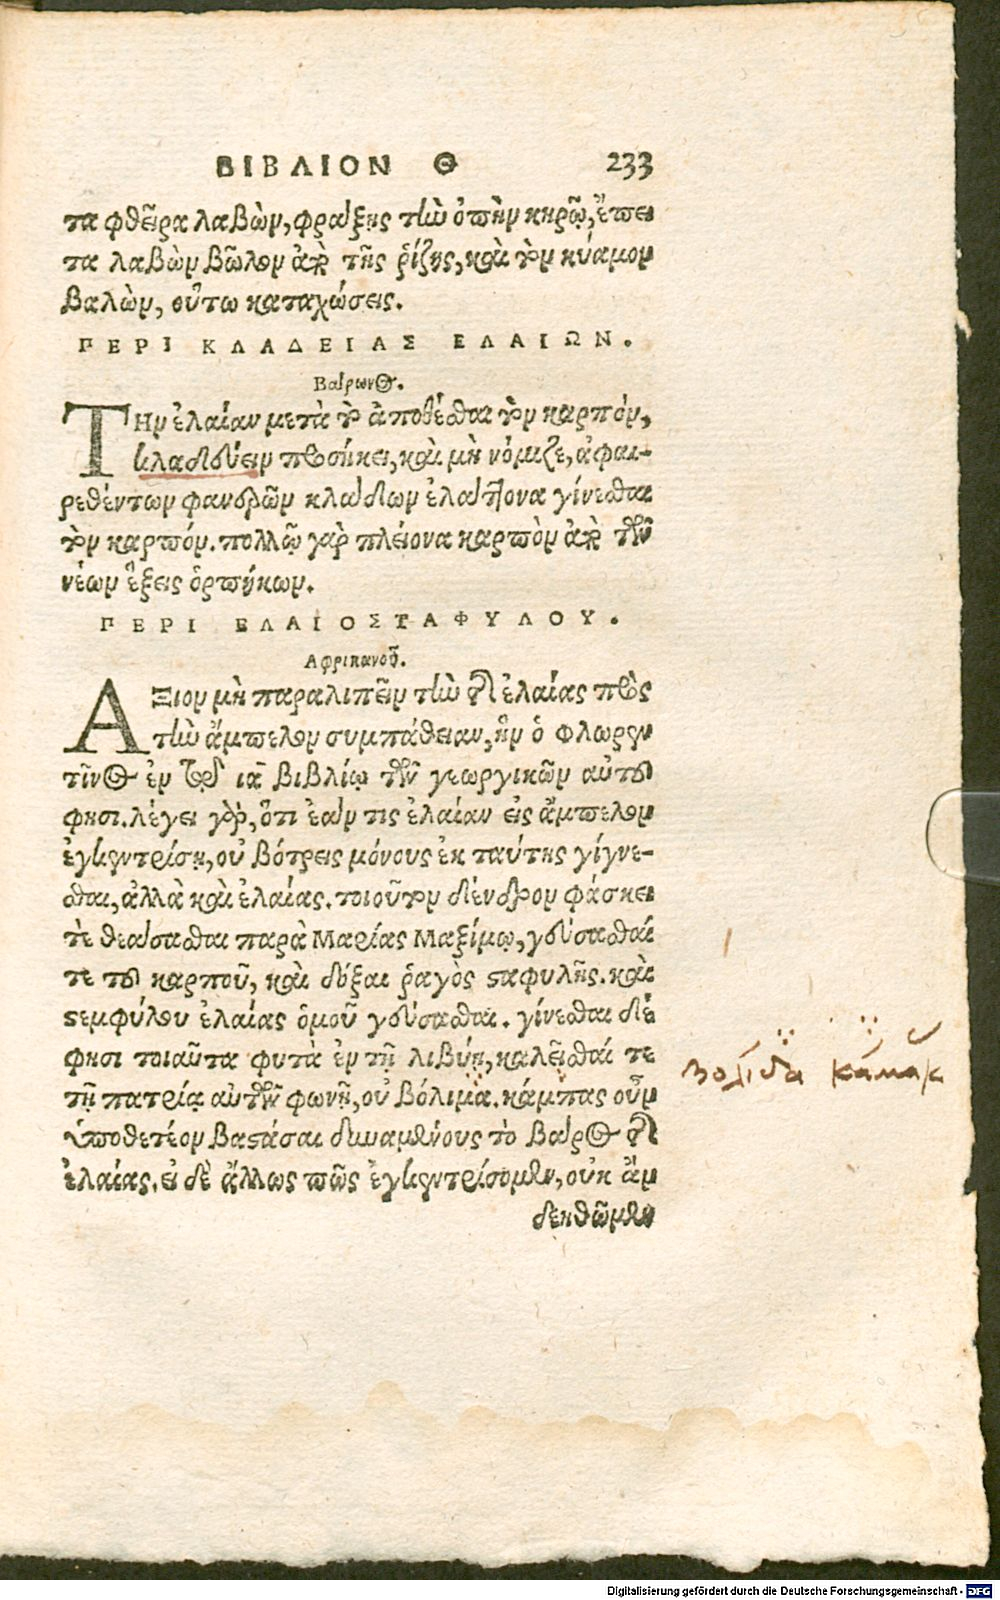 ΒΙΒΛΙΟΝ Θ 233
τα φθεῖρα λαβὼν, φράξῃς τὴν ὀπὴν κηρῷ, ἔπει
τα λαβὼν βῶλον ἀπὸ τῆς ῥίζης, καὶ τὸν κύαμον
βαλὼν, οὕτω καταχώσεις.
ΠΕΡΙ ΚΛΑΔΕΙΑΣ ΕΛΑΙΩΝ.
Βάρωνος.
ΤΗν ἐλαίαν μετὰ τὸ ἀποθέσθαι τὸν καρπόν,
κλαδεύειν προσήκει, καὶ μὴ νόμιζε, ἀφαι-
ρεθέντων φανερῶν κλάδων ἐλάττονα γίνεσθαι
τὸν καρπόν. πολλῷ γὰρ πλείονα καρπὸν ἀπὸ τῶν
νέων ἕξεις ὁρπήκων.
ΠΕΡΙ ΕΛΑΙΟΣΤΑΦΥΛΟΥ.
Αφρικανοῦ.
ΑΞιον μὴ παραλιπεῖν τὴν τῆς ἐλαίας πρὸς
τὴν ἄμπελον συμπάθειαν, ἣν ὁ Φλωρεν
τῖνος ἐν τῷ ιᾶ βιβλίῳ τῶν γεωργικῶν αὐτοῦ
φησι. λέγει γὰρ, ὅτι ἐάν τις ἐλαίαν εἰς ἄμπελον
ἐγκεντρίσῃ, οὐ βότρεις μόνους ἐκ ταύτης γίγνε-
σθαι, ἀλλὰ καὶ ἐλαίας. τοιοῦτον δένδρον φάσκει
τὲ θεάσασθαι παρὰ Μαρίας Μαξίμῳ, γεύσασθαί
τε τοῦ καρποῦ, καὶ δόξαι ῥαγὸς σταφυλῆς. καὶ
στεμφύλου ἐλαίας ὁμοῦ γεύσασθαι. γίνεσθαι δέ
φησι τοιαῦτα φυτὰ ἐν τῇ λιβύῃ, καλεῖσθαί τε
τῇ πατρίᾳ αὐτῶν φωνῇ, οὐ βόλιμα. κάμπας οὖν
ὑποθετέον βαστάσαι δυναμένους τὸ βάρος τῆς
ἐλαίας. εἰ δὲ ἄλλως πῶς ἐγκεντρίσομεν, οὐκ ἂν
δεηθῶμεν
βολίδα κάμακ
Digitalisierung gefördert durch die Deutsche Forschungsgemeinschaft - DFG